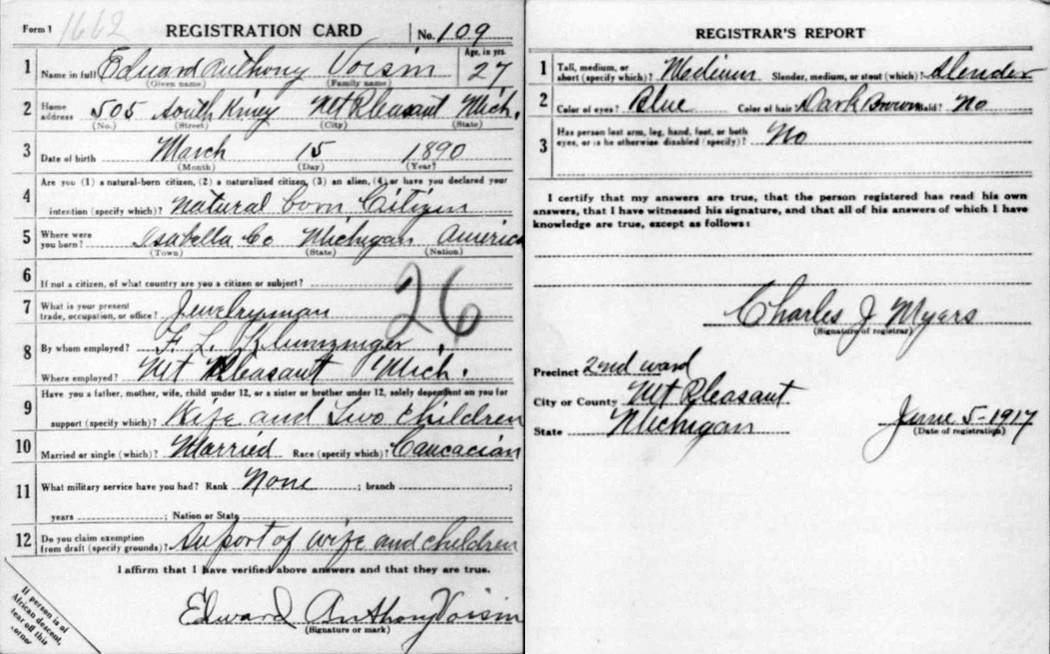 Form 1 1662 REGISTRATION CARD No. 109
1 Name in full Edward Anthony Voisin Age, in yrs. 27
(Given name) (Family name)
2 Home address 505 South Kiney Mt Pleasant Mich.
(No.) (Street) (City) (State)
3 Date of birth March 15 1890
(Month) (Day) (Year)
Are you (1) a natural-born citizen, (2) a naturalized citizen, (3) an alien, (4) or have you declared your
4 intention (specify which)? Natural born Citizen
5 Where were you born? Isabella Co Michigan America
(Town) (State) (Nation)
6 If not a citizen, of what country are you a citizen or subject?
26
7 What is your present trade, occupation, or office? Jewelryman
8 By whom employed? F. L.
Where employed? Mt Pleasant Mich.
9 Have you a father, mother, wife, child under 12, or a sister or brother under 12, solely dependent on you for
support (specify which)? Wife and Two children
10 Married or single (which)? Married Race (specify which)? Caucacian
11 What military service have you had? Rank None ; branch ;
years ; Nation or State
12 Do you claim exemption from draft (specify grounds)? Suport of wife and children
I affirm that I have verified above answers and that they are true.
Edward Anthony Voisin
(Signature or mark)
If person is of
African descent,
tear off this
corner
REGISTRAR'S REPORT
1 Tall, medium, or short (specify which)? Medium Slender, medium, or stout (which)? Slender
2 Color of eyes? Blue Color of hair? Dark Brown Bald? No
3 Has person lost arm, leg, hand, foot, or both eyes, or is he otherwise disabled (specify)? No
I certify that my answers are true, that the person registered has read his own
answers, that I have witnessed his signature, and that all of his answers of which I have
knowledge are true, except as follows:
Charles J Myers
(Signature of registrar)
Precinct 2nd ward
City or County Mt Pleasant
State Michigan June 5-1917
(Date of registration)